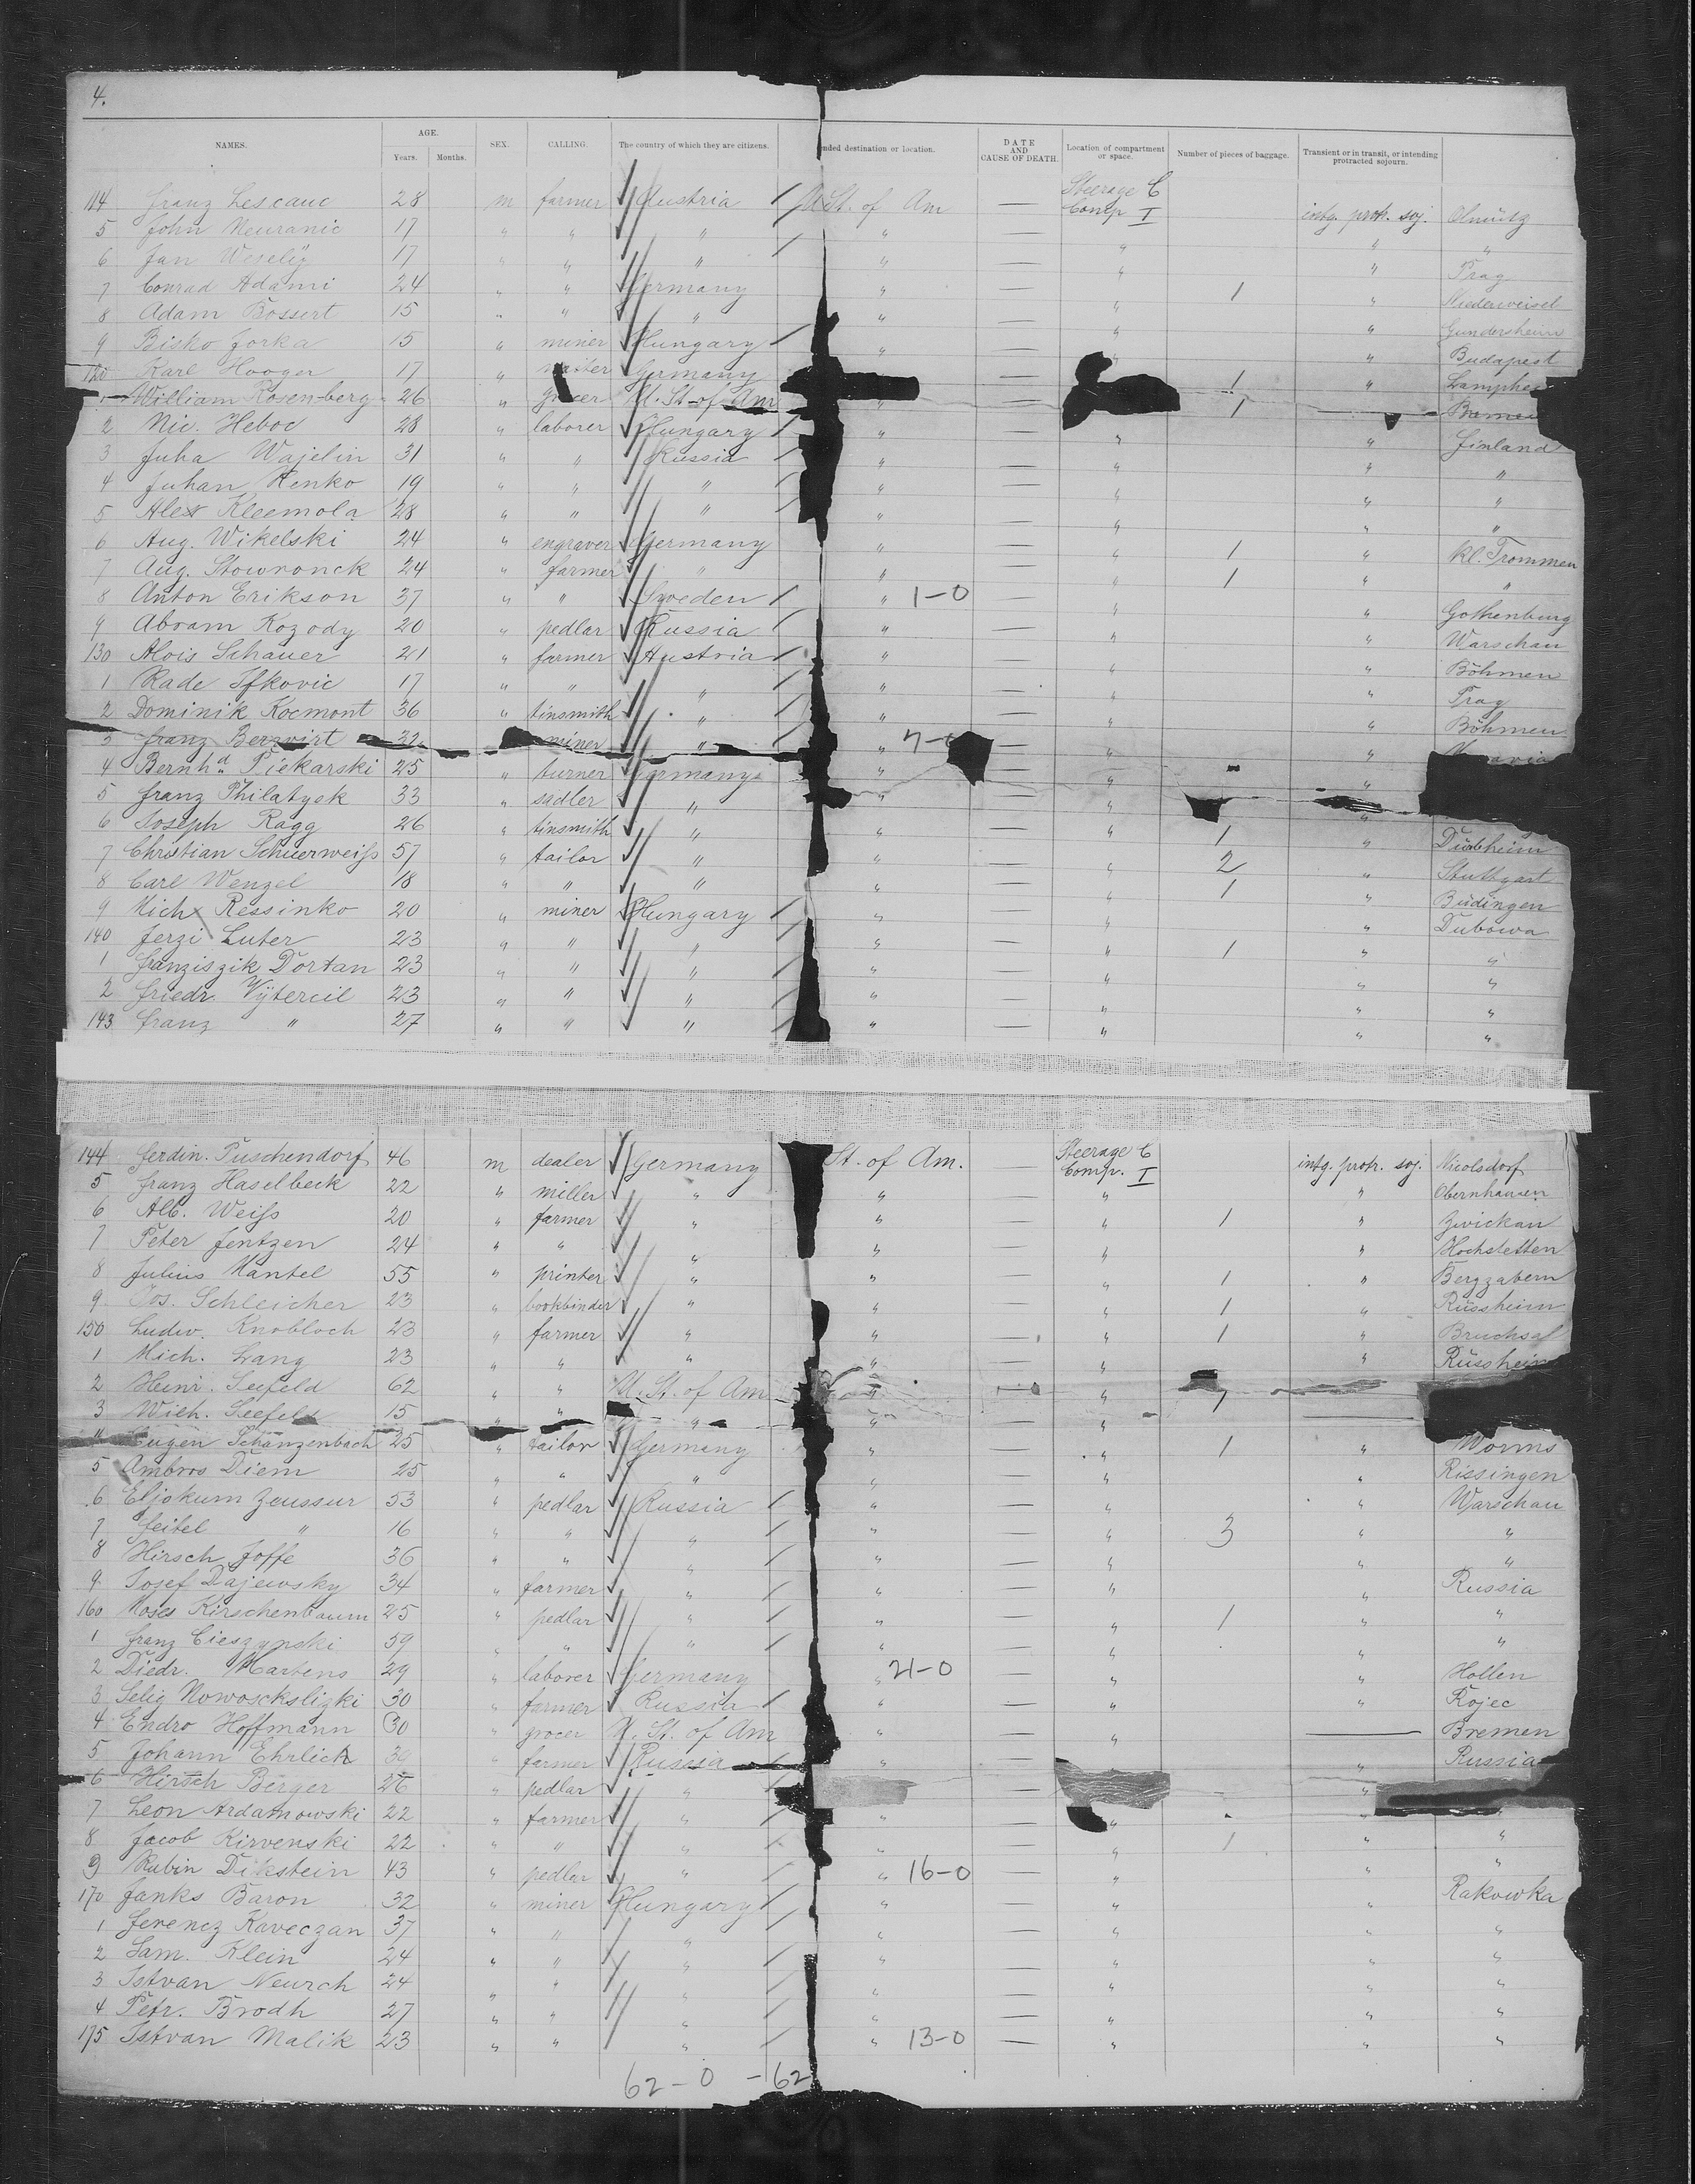 4.
NAMES. AGE. Years. Months. SEX. CALLING. The country of which they are citizens. nded destination or location. DATE AND CAUSE OF DEATH. Location of compartment or space. Number of pieces of baggage. Transient or in transit, or intending protracted sojourn.
114 Franz Lescauc 28 m farmer Austria U St. of Am — Steerage C Comp I intg. protr. soj. Olmütz
5 John Neuranic 17 " " " " — " " "
6 Jan Weselÿ 17 " " " " — " " Prag
7 Conrad Adami 24 " " Germany " — " 1 " Niederweisel
8 Adam Bossert 15 " " " " — " " Gundersheim
9 Bisko Jorka 15 " miner Hungary " — " " Budapest
120 Karl Hooger 17 " waiter Germany " — 1 "
1 William Rosenberg 26 " grocer U. St. of Am " — 1 — Bremen
2 Nic. Heboc 28 " laborer Hungary " — " "
3 Juha Wajelin 31 " " Russia " — " " Finland
4 Juhan Renko 19 " " " " — " " "
5 Alex Kleemola 28 " " " " — " " "
6 Aug. Wikelski 24 " engraver Germany " — " 1 " Kl. Trommen
7 Aug. Stowronck 24 " farmer " " — " 1 " "
8 Anton Erikson 37 " " Sweden " 1-0 — " " Gothenburg
9 Abram Kozody 20 " pedlar Russia " — " " Warschau
130 Alois Schauer 21 " farmer Austria " — " " Böhmen
1 Rade Ifkovic 17 " " " " — " " Prag
2 Dominik Kocmont 36 " tinsmith " " — " " Böhmen
3 Franz Berzwirt 32 miner " " 7- — "
4 Bernhd. Piekarski 25 " turner Germany " — " "
5 Franz Philatyek 33 " sadler " " — " "
6 Joseph Ragg 26 " tinsmith " " — " 1 " Dürbheim
7 Christian Scheurweiss 57 " tailor " " — " 2 " Stuttgart
8 Carl Wenzel 18 " " " " — " 1 " Büdingen
9 Mich Ressinko 20 " miner Hungary " — " " Dubowa
140 Jerzi Luter 23 " " " " — " 1 " "
1 Franziszik Dortan 23 " " " " — " " "
2 Friedr. Vÿtercil 23 " " " " — " " "
143 Franz " 27 " " " " — " " "
144 Ferdin. Puschendorf 46 m dealer Germany St. of Am. — Steerage C Comp. I intg. protr. soj. Nicolsdorf
5 Franz Haselbeck 22 " miller " " — " " Obernhausen
6 Alb. Weiss 20 " farmer " " — " 1 " Zwickau
7 Peter Jentzen 24 " " " " — " " Hochstetten
8 Julius Mantel 55 " printer " " — " 1 " Bergzabern
9 Jos. Schleicher 23 " bookbinder " " — " 1 " Rüssheim
150 Ludw. Knobloch 23 " farmer " " — " 1 " Bruchsal
1 Mich. Lang 23 " " " " — " " Rüssheim
2 Heinr. Seefeld 62 " " U. St. of Am " — " 1
3 Wilh. Seefeld 15 " " " " — " —
4 Eugen Schanzenbach 25 tailor Germany " — " 1 " Worms
5 Ambros Diem 25 " " " " — " " Rissingen
6 Eljokum Zeussur 53 " pedlar Russia " — " " Warschau
7 Feitel " 16 " " " " — " 3 " "
8 Hirsch Joffe 36 " " " " — " " "
9 Josef Dajewsky 34 " farmer " " — " " Russia
160 Moses Kirschenbaum 25 " pedlar " " — " 1 " "
1 Franz Cieszynski 59 " " " " — " " "
2 Diedr. Martens 29 " laborer Germany " 21-0 — " " Hollen
3 Selig Nowosckslizki 30 " farmer Russia " — " " Rojec
4 Endro Hoffmann 30 " grocer U. St. of Am " — " — Bremen
5 Johann Ehrlich 39 " farmer Russia " — " Russia
6 Hirsch Berger 26 " pedlar " — "
7 Leon Ardamowski 22 " farmer " " — " " "
8 Jacob Kirvenski 22 " " " " — " 1 " "
9 Rubin Dikstein 43 " pedlar " " 16-0 — " " "
170 Janks Baron 32 " miner Hungary " — " " Rakowka
1 Ferencz Kaveczan 37 " " " " — " " "
2 Sam. Klein 24 " " " " — " " "
3 Istvan Neurch 24 " " " " — " " "
4 Petr. Brodh 27 " " " " — " " "
175 Istvan Malik 23 " " " " 13-0 — " " "
62 - 0 - 62